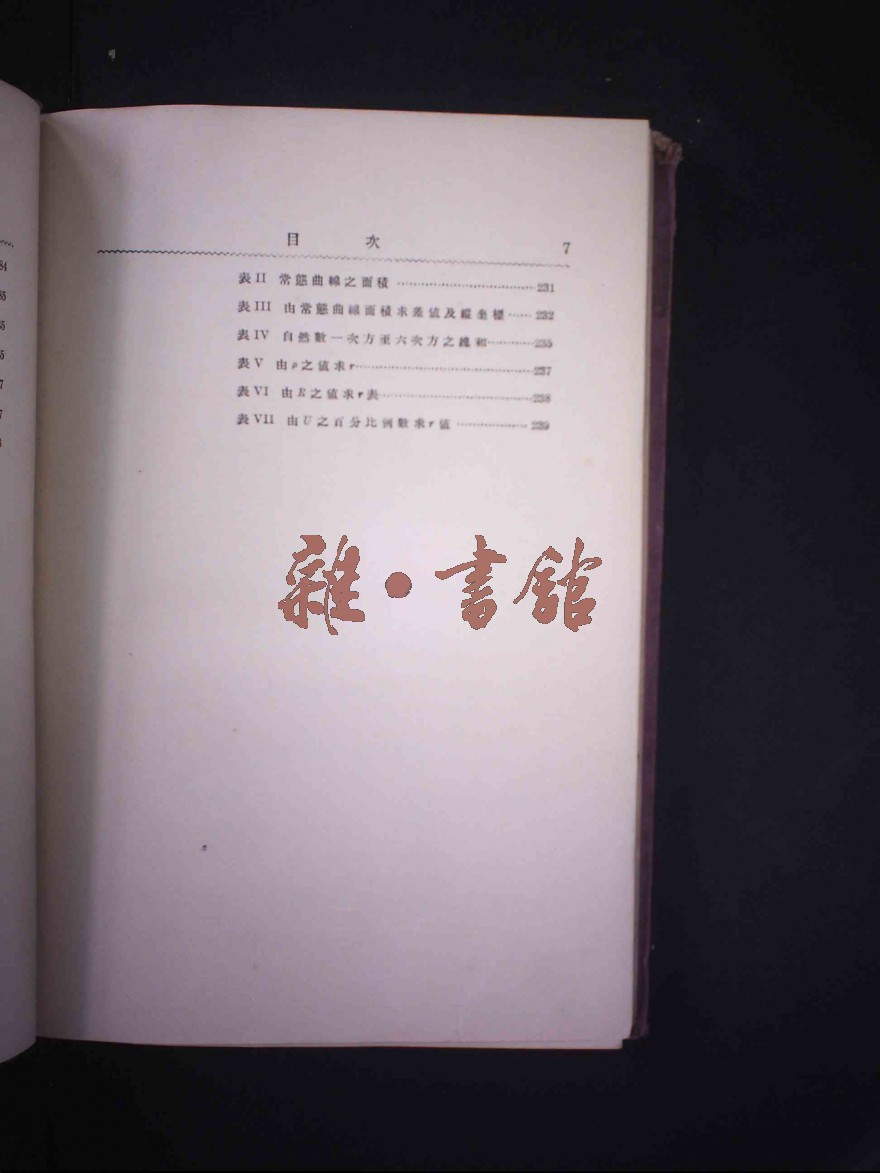 84
85
目 次 7
表 II 常態曲線之面積 ……………………………231
表 III 由常態曲線面積求差值及縱坐標……232
表 IV 自然數一次方至六次方之總和…………235
表 V 由ρ之值求r……………………………………237
表 VI 由R之值求r表………………………………238
表 VII 由U之百分比例數求r值 ………………239
雜·書館